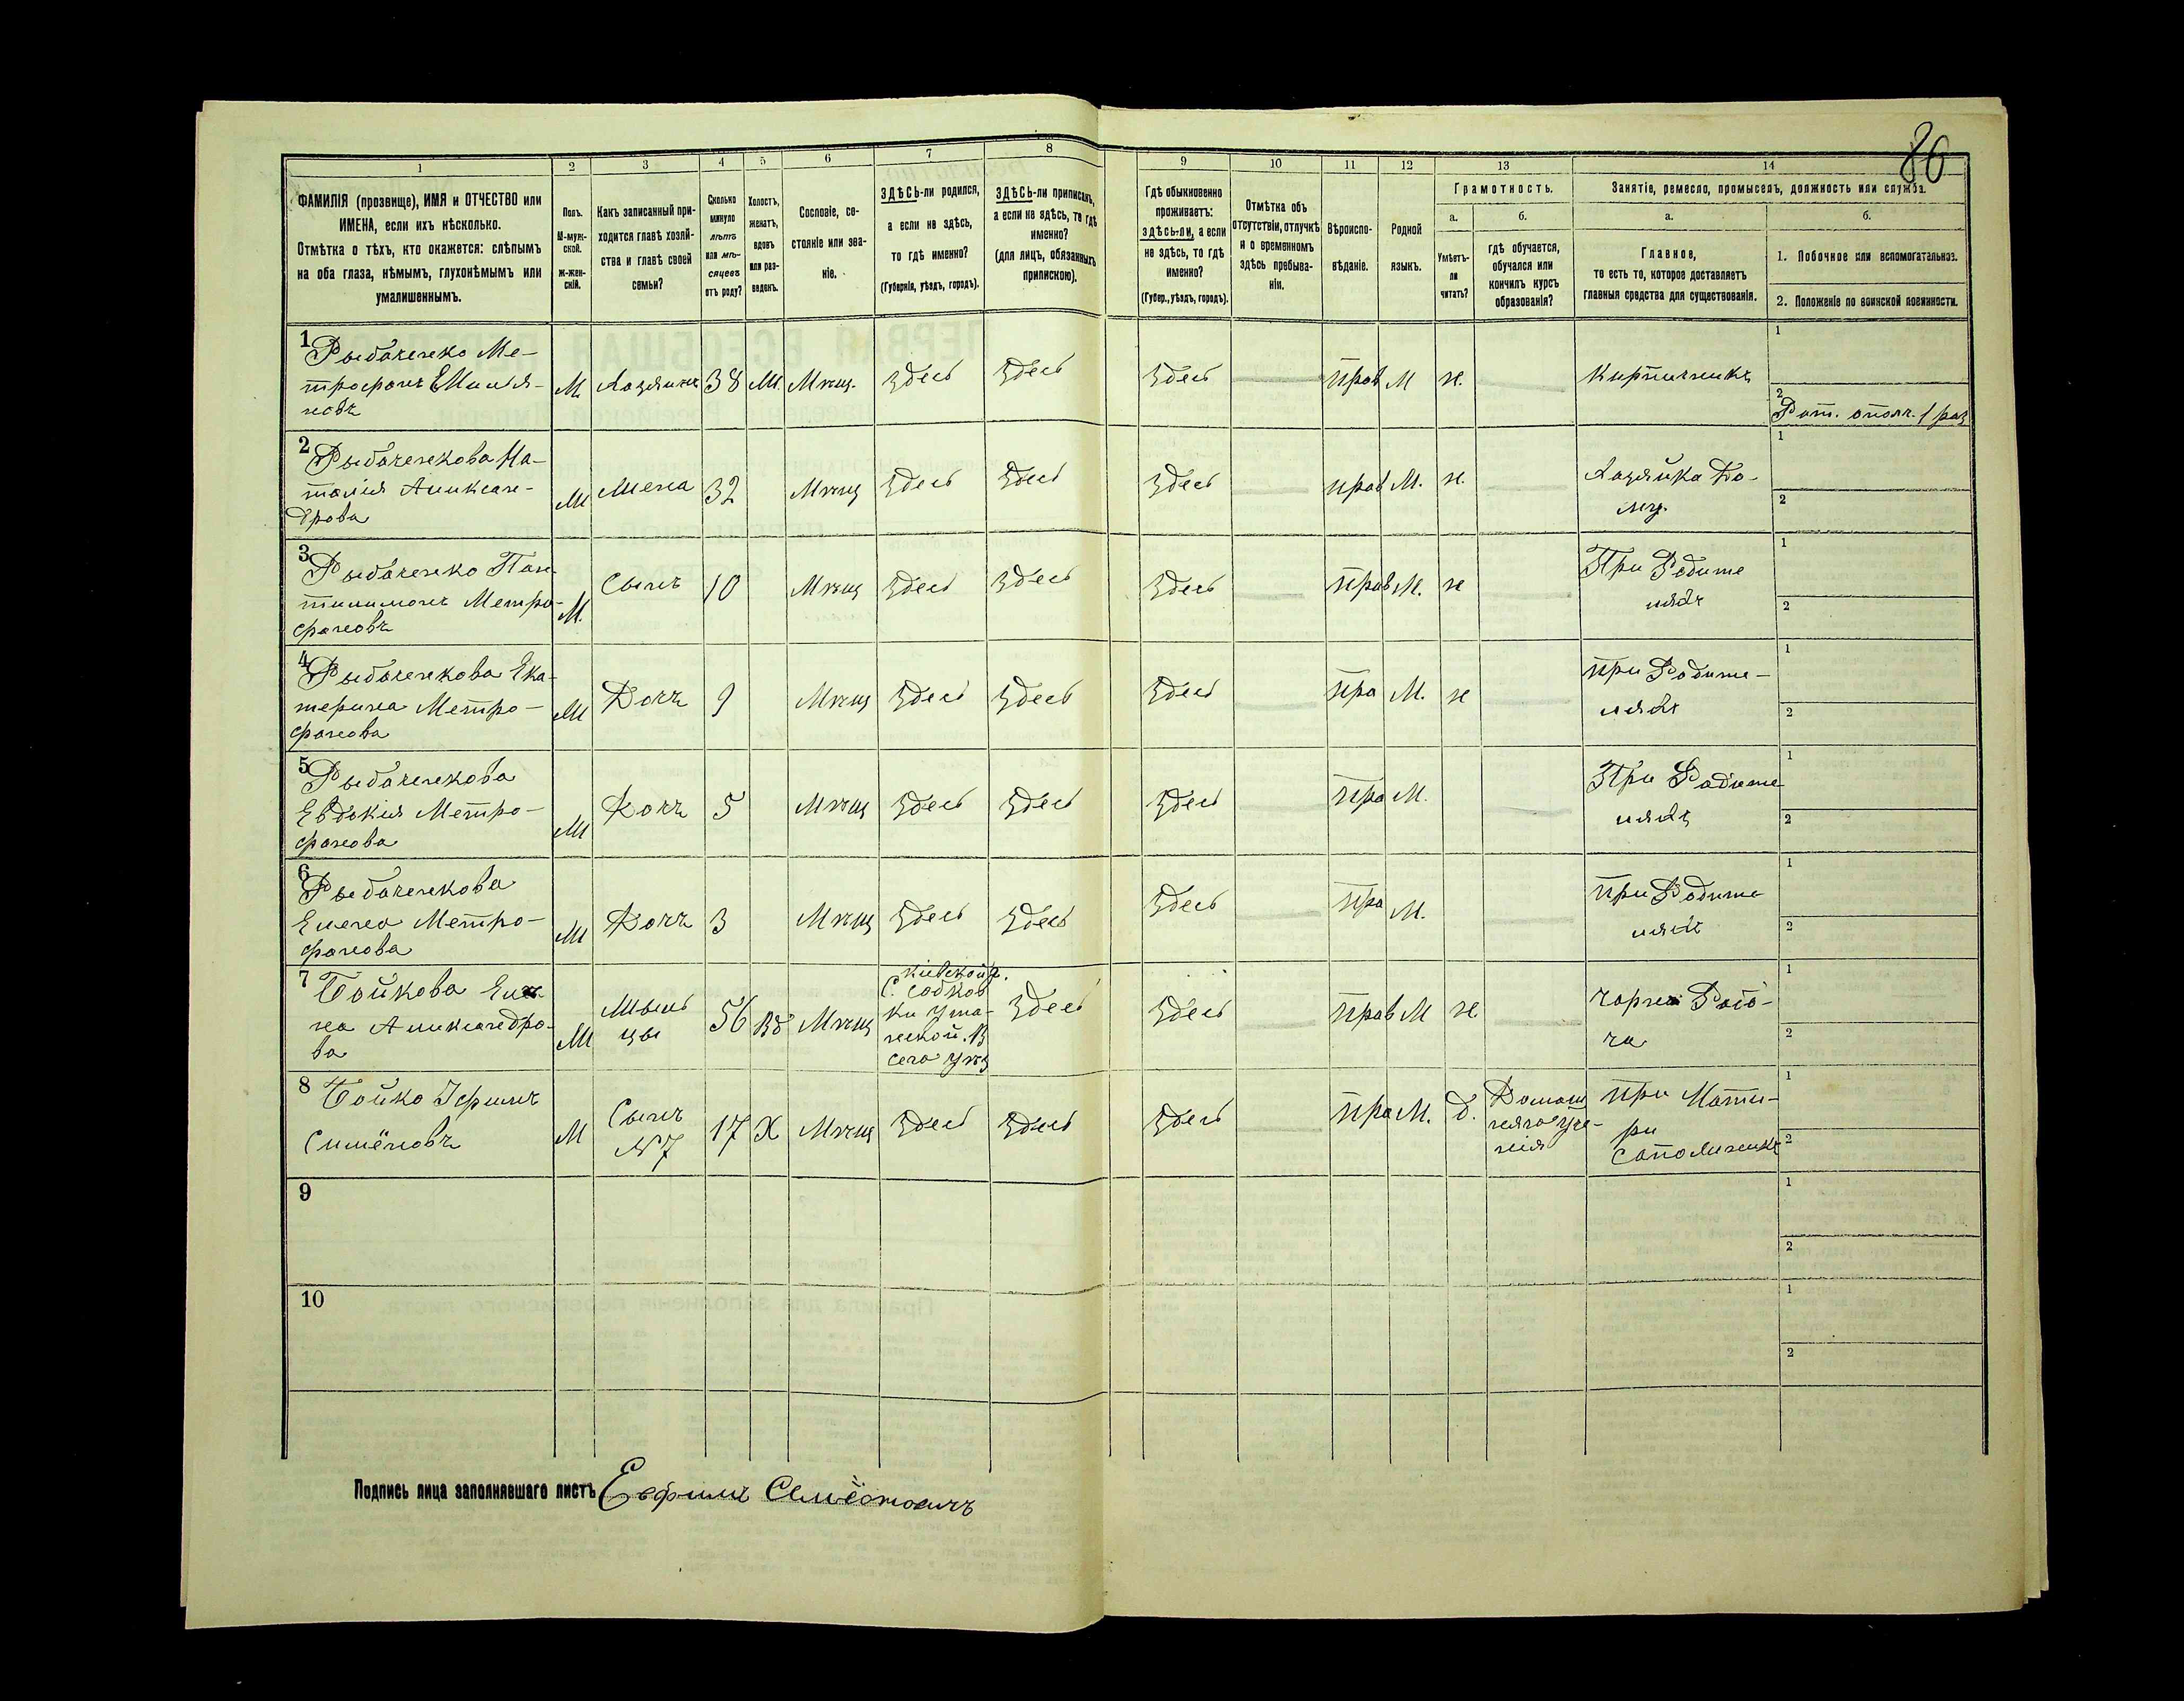 86
1 2 3 4 5 6 7 8 9 10 11 12 13 14
ФАМИЛІЯ (прозвище), ИМЯ и ОТЧЕСТВО или
ИМЕНА, если ихъ нѣсколько.
Отмѣтка о тѣхъ, кто окажется: слѣпымъ
на оба глаза, нѣмымъ, глухонѣмымъ или
умалишеннымъ.
Полъ.
М-муж-
ской.
Ж-жен-
скій.
Какъ записанный при-
ходится главѣ хозяй-
ства и главѣ своей
семьи?
Сколько
минуло
лѣтъ
или мѣ-
сяцевъ
отъ роду?
Холостъ,
женатъ,
вдовъ
или раз-
веденъ.
Сословіе, со-
стояніе или зва-
ніе.
ЗДѢСЬ-ли родился,
а если не здѣсь,
то гдѣ именно?
(Губернія, уѣздъ, городъ).
ЗДѢСЬ-ли приписанъ,
а если не здѣсь, то гдѣ
именно?
(для лицъ, обязанныхъ
припискою).
Гдѣ обыкновенно
проживаетъ:
здѣсь-ли, а если
не здѣсь, то гдѣ
именно?
(Губер., уѣздъ, городъ).
Отмѣтка объ
отсутствіи, отлучкѣ
и о временномъ
здѣсь пребыва-
ніи.
Вѣроиспо-
вѣданіе.
Родной
языкъ.
Грамотность.
а.
Умѣетъ-
ли
читать?
б.
гдѣ обучается,
обучался или
кончилъ курсъ
образованія?
Занятіе, ремесло, промыселъ, должность или служба.
а.
Главное,
то есть то, которое доставляетъ
главныя средства для существованія.
б.
1. Побочное или вспомогательное.
2. Положеніе по воинской повинности.
1 Рыбаченко Ме-
трофанъ Емилія-
новъ
М. Хазяинъ 38 Мѣщ. Здесь Здесь Здесь прав М н. Кирпичникъ
1
2 Рат. ополч. 1 раз
2 Рыбаченкова На-
талія Аликсан-
дрова
32 Мѣщ Здесь Здесь Здесь прав М. н. Хазяйка До-
1
2
3 Рыбаченко Пан-
тилимонъ Метро-
фановъ
М. Сынъ 10 Мѣщ Здесь Здесь Здесь прав М. н При Родите
ляхъ
1
2
4 Рыбаченкова Ека-
терина Метро-
фанова
Дочь 9 Мѣщ Здесь Здесь Здесь пра М. н при Родите-
ляхъ
1
2
5 Рыбаченкова
Евдокия Метро-
фанова
Дочь 5 Мѣщ Здесь Здесь Здесь пра М. При Родите
ляхъ
1
2
6 Рыбаченкова
Елена Метро-
фанова
Дочь 3 Мѣщ Здесь Здесь Здесь пра М. при Родите
ляхъ
1
2
7 Бойкова Еле
на Аликсандро-
ва
56 Вд Мѣщ кіевской г.
Здесь Здесь прав М н.
1
2
8 Бойко Ефимъ
Симёновъ
М Сынъ
№7
17 Х Мѣщ Здесь Здесь Здесь пра М. д. Домаш
няго уче-
нія
при Мати-
ри
1
2
9
1
2
10
1
2
Подпись лица заполнявшаго листъ Евфимъ